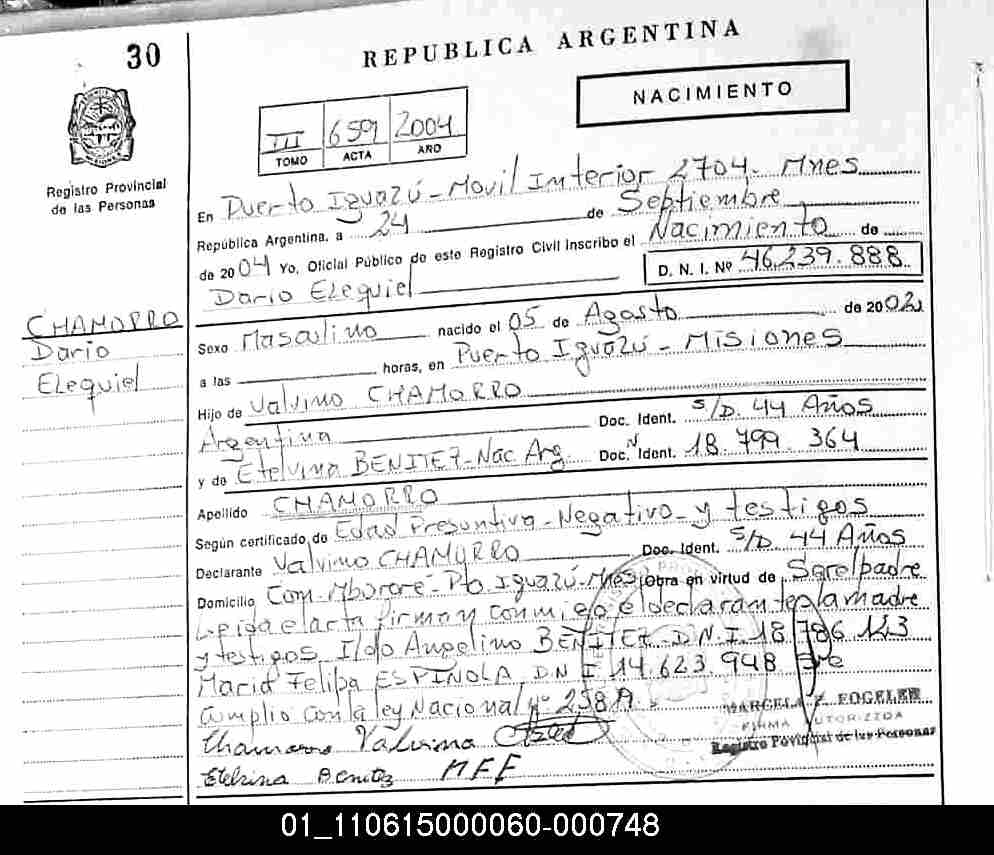 30
REPUBLICA ARGENTINA
NACIMIENTO
III 6591 2004
TOMO ACTA AÑO
Registro Provincial
de las Personas
En Puerto Iguazú - Movil Interior 2704. Mnes
República Argentina, a 24 de Septiembre
de 2004 Yo, Oficial Público de este Registro Civil Inscribo el Nacimiento de
Dario Ezequiel D. N. I. Nº 46.239.888
CHAMORRO
Dario
Ezequiel
Sexo Masculino nacido el 05 de Agosto de 2002
a las horas, en Puerto Iguazú - Misiones
Hijo de Valvino CHAMORRO
Argentina Doc. Ident. S/D. 44 Años
y de Etelvina BENITEZ - Nac Arg. Doc. Ident. 18.799.364
Apellido CHAMORRO
Según certificado de Edad Presuntiva - Negativo - y testigos
Declarante Valvino CHAMORRO Doc. Ident. S/D. 44 Años
Domicilio Com. Mbororé - Pto Iguazú - Mnes Obra en virtud de Ser el padre
Leida el acta firman conmigo el declarante la madre
y testigos Ildo Angelino BENITEZ - D.N.I. 18.786.123
Maria Felipa ESPINOLA, D.N.I. 14.623.948
Cumplio con la ley Nacional Nº
MARCELA FOGELER
FIRMA AUTORIZZDA
Registro Povincial de las Personas
Chamorro Valvino
Etelvina Benitez MFE
01_110615000060-000748